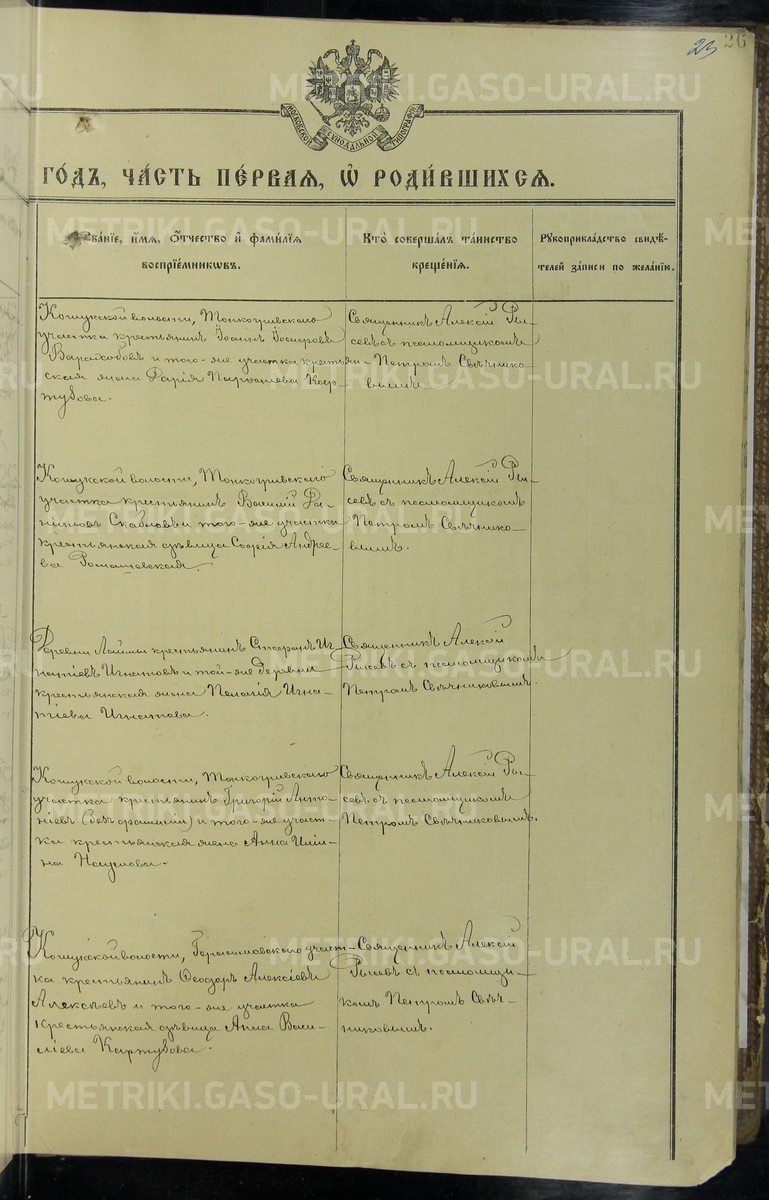 23 26
METRIKI.GASO-URAL.RU
МОСКОВСКОЙ СѴНОДАЛЬНОЙ ТИПОГРАФІИ
ГО́ДЪ, ЧА́СТЬ ПЕ́РВАЯ, Ѡ҆ РОДИ́ВШИХСЯ.
Зва́нїе, и҆́мя, ѻ҆́тчество и҆ фами́лїя
воспрїе́мникѡвъ.
Кто̀ соверша́лъ та́инство
креще́нїя.
Рꙋкоприкла́дство свидѣ́-
телей за́писи по жела́нїю.
Кошукской волости, Тонкогривского
участка крестьянинъ Іоаннъ
и того-же участка крестьян-
ская жена Дарія Кар-
тузова.
Священникъ Алексій Ры-
севъ съ псаломщикомъ
Петромъ Свѣчнико-
вымъ.
Кошукской волости, Тонкогривского
участка крестьянинъ Василій
и того-же участка
крестьянская дѣвица Софія Андрее-
ва Ромашевская.
Священникъ Алексій Ры-
севъ съ псаломщикомъ
Петромъ Свѣчнико-
вымъ.
Деревни крестьянинъ Стефанъ Иг-
натіевъ Игнатовъ и той-же деревни
крестьянская жена Пелагія Игна-
тіева Игнатова.
Священникъ Алексій
Рысевъ съ псаломщикомъ
Петромъ Свѣчниковымъ.
Кошукской волости, Тонкогривского
участка крестьянинъ Григорій Анто-
ніевъ (безъ фамиліи) и того-же участ-
ка крестьянская жена Анна Ильи-
на Наумова.
Священникъ Алексій Ры-
севъ съ псаломщикомъ
Петромъ Свѣчниковымъ.
Кошукской волости, Герасимовского участ-
ка крестьянинъ Ѳеодоръ Алексіевъ
Алексѣевъ и того-же участка
крестьянская дѣвица Анна Васи-
ліева Картузова.
Священникъ Алексій
Рысевъ съ псаломщи-
комъ Петромъ Свѣч-
никовымъ.
METRIKI.GASO-URAL.RU